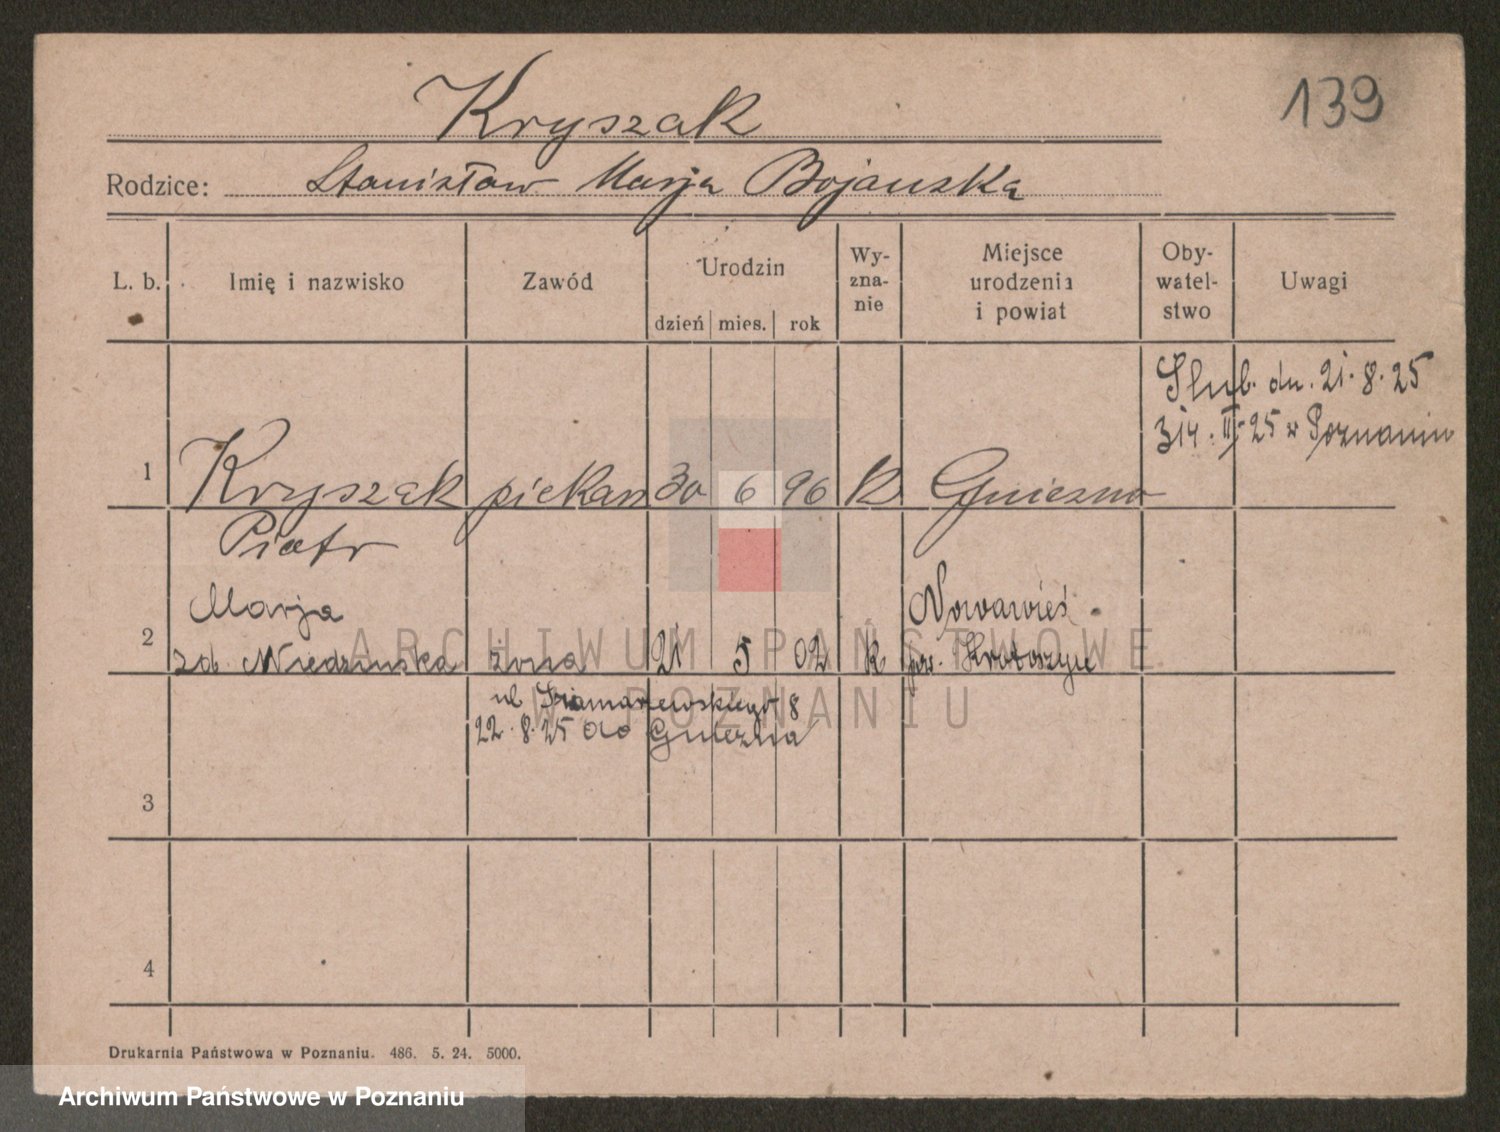 139
Kryszak
Rodzice: Stanisław Marja Bojanska
L. b. Imię i nazwisko Zawód Urodzin dzień mies. rok Wy-zna-nie Miejsce urodzenia i powiat Oby-watel-stwo Uwagi
Slub. dn. 21. 8. 25
w Poznaniu
1 Kryszak piekarz 30 6 96 K Gniezno
Piotr
Marja Nowawieś
2 zd. Niedzinska żona 21 5 02 K pow. Krotoszyn
ARCHIWUM PAŃSTWOWE
W POZNANIU
ul 8
22. 8. 25 do Gniezna
3
4
Drukarnia Państwowa w Poznaniu. 486. 5. 24. 5000.
Archiwum Państwowe w Poznaniu